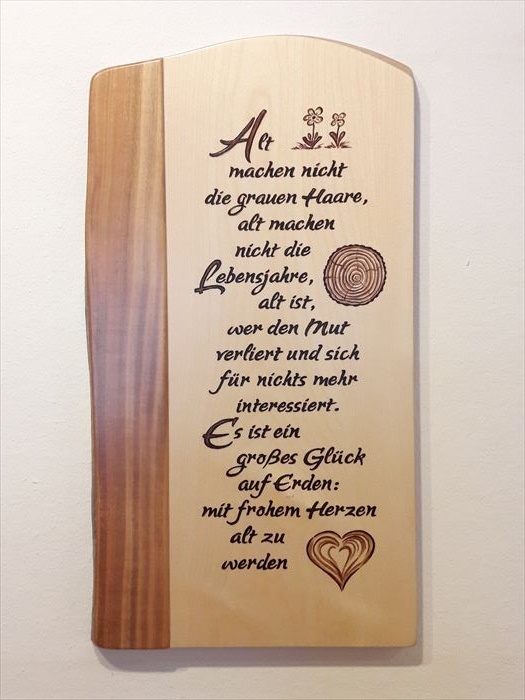 Alt
machen nicht
die grauen Haare,
alt machen
nicht die
Lebensjahre,
alt ist,
wer den Mut
verliert und sich
für nichts mehr
interessiert.
Es ist ein
großes Glück
auf Erden:
mit frohem Herzen
alt zu
werden